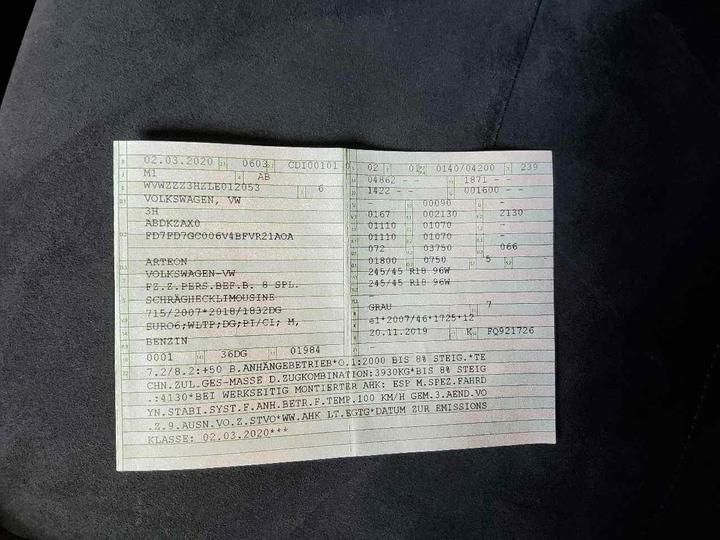 02.03.2020 0603 CDI00101
M1 AB
WVWZZZ3HZLE012053 6
VOLKSWAGEN, VW
3H
ABDKZAX0
FD7FD7GC006V4BFVR21AOA
ARTEON
VOLKSWAGEN-VW
FZ.Z.PERS.BEF.B. 8 SPL.
SCHRÄGHECKLIMOUSINE
715/2007*2018/1832DG
EURO6;WLTP;DG;PI/CI; M,
BENZIN
0001 36DG 01984
02 01 0140/04200 239
04862 - - 1871 - -
1422 - - 001600 - -
- 00090 -
0167 002130 2130
01110 01070 -
01110 01070 -
072 03750 066
01800 0750 5 -
245/45 R18 96W
245/45 R18 96W
-
GRAU 7
e1*2007/46*1725*12
20.11.2019 K FQ921726
-
7.2/8.2:+50 B.ANHÄNGEBETRIEB*O.1:2000 BIS 8% STEIG.*TE
CHN.ZUL.GES-MASSE D.ZUGKOMBINATION:3930KG*BIS 8% STEIG
.:4130*BEI WERKSEITIG MONTIERTER AHK: ESP M.SPEZ.FAHRD
YN.STABI.SYST.F.ANH.BETR.F.TEMP.100 KM/H GEM.3.AEND.VO
.Z.9.AUSN.VO.Z.STVO*WW.AHK LT.EGTG*DATUM ZUR EMISSIONS
KLASSE: 02.03.2020***